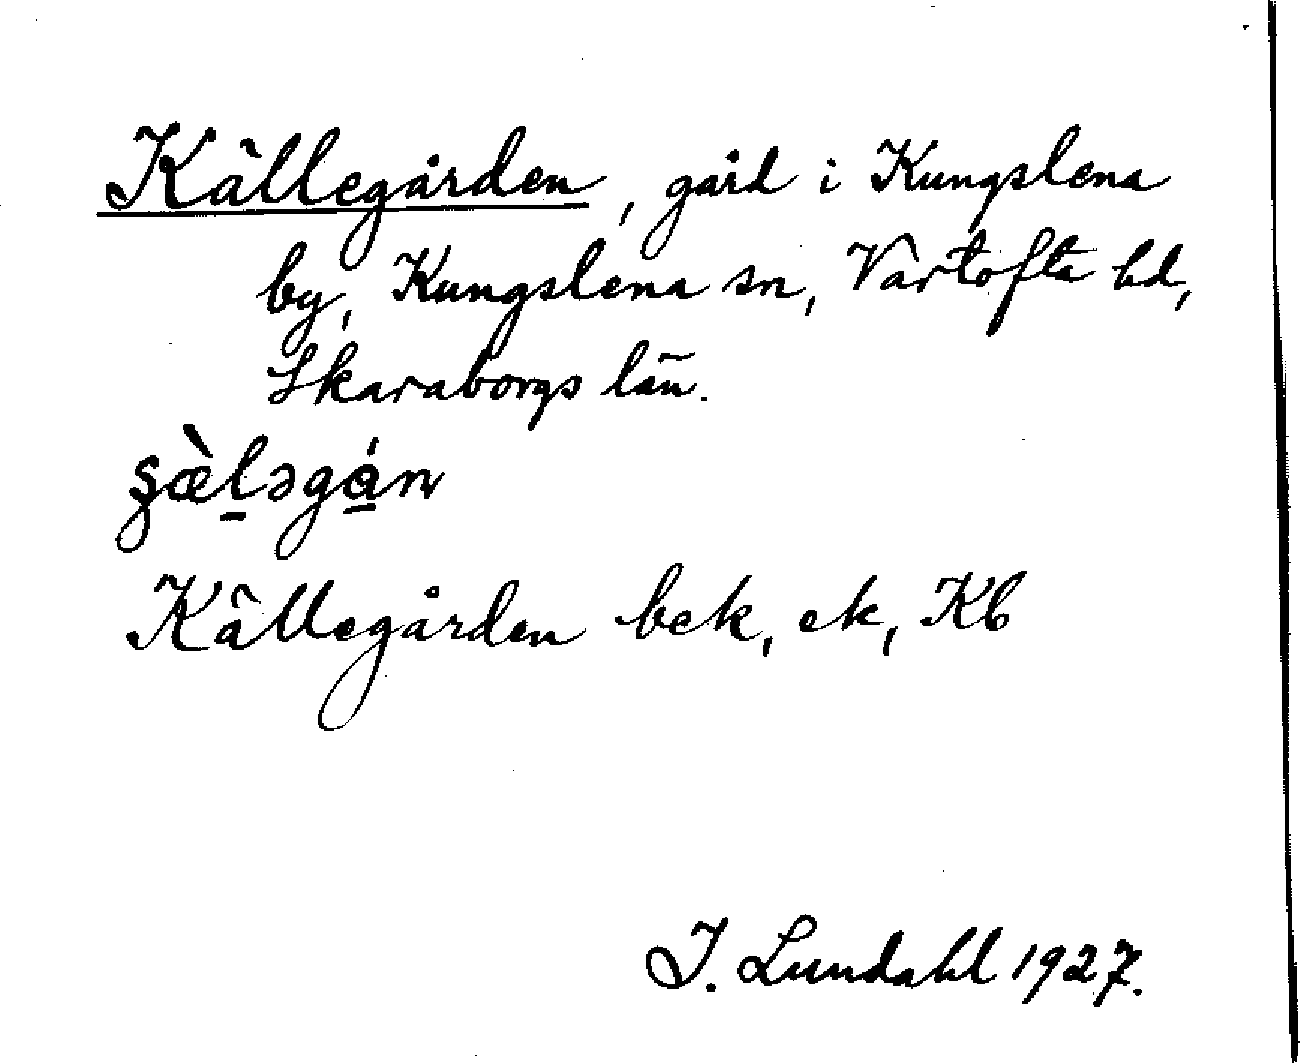 Källegården, gård i Kungslena
by, Kungslena sn, Vartofta hd,
Skaraborgs län.
ʂæ̀l̠əgá̠n
Källegården bek, ek, Kb
I. Lundahl 1927.